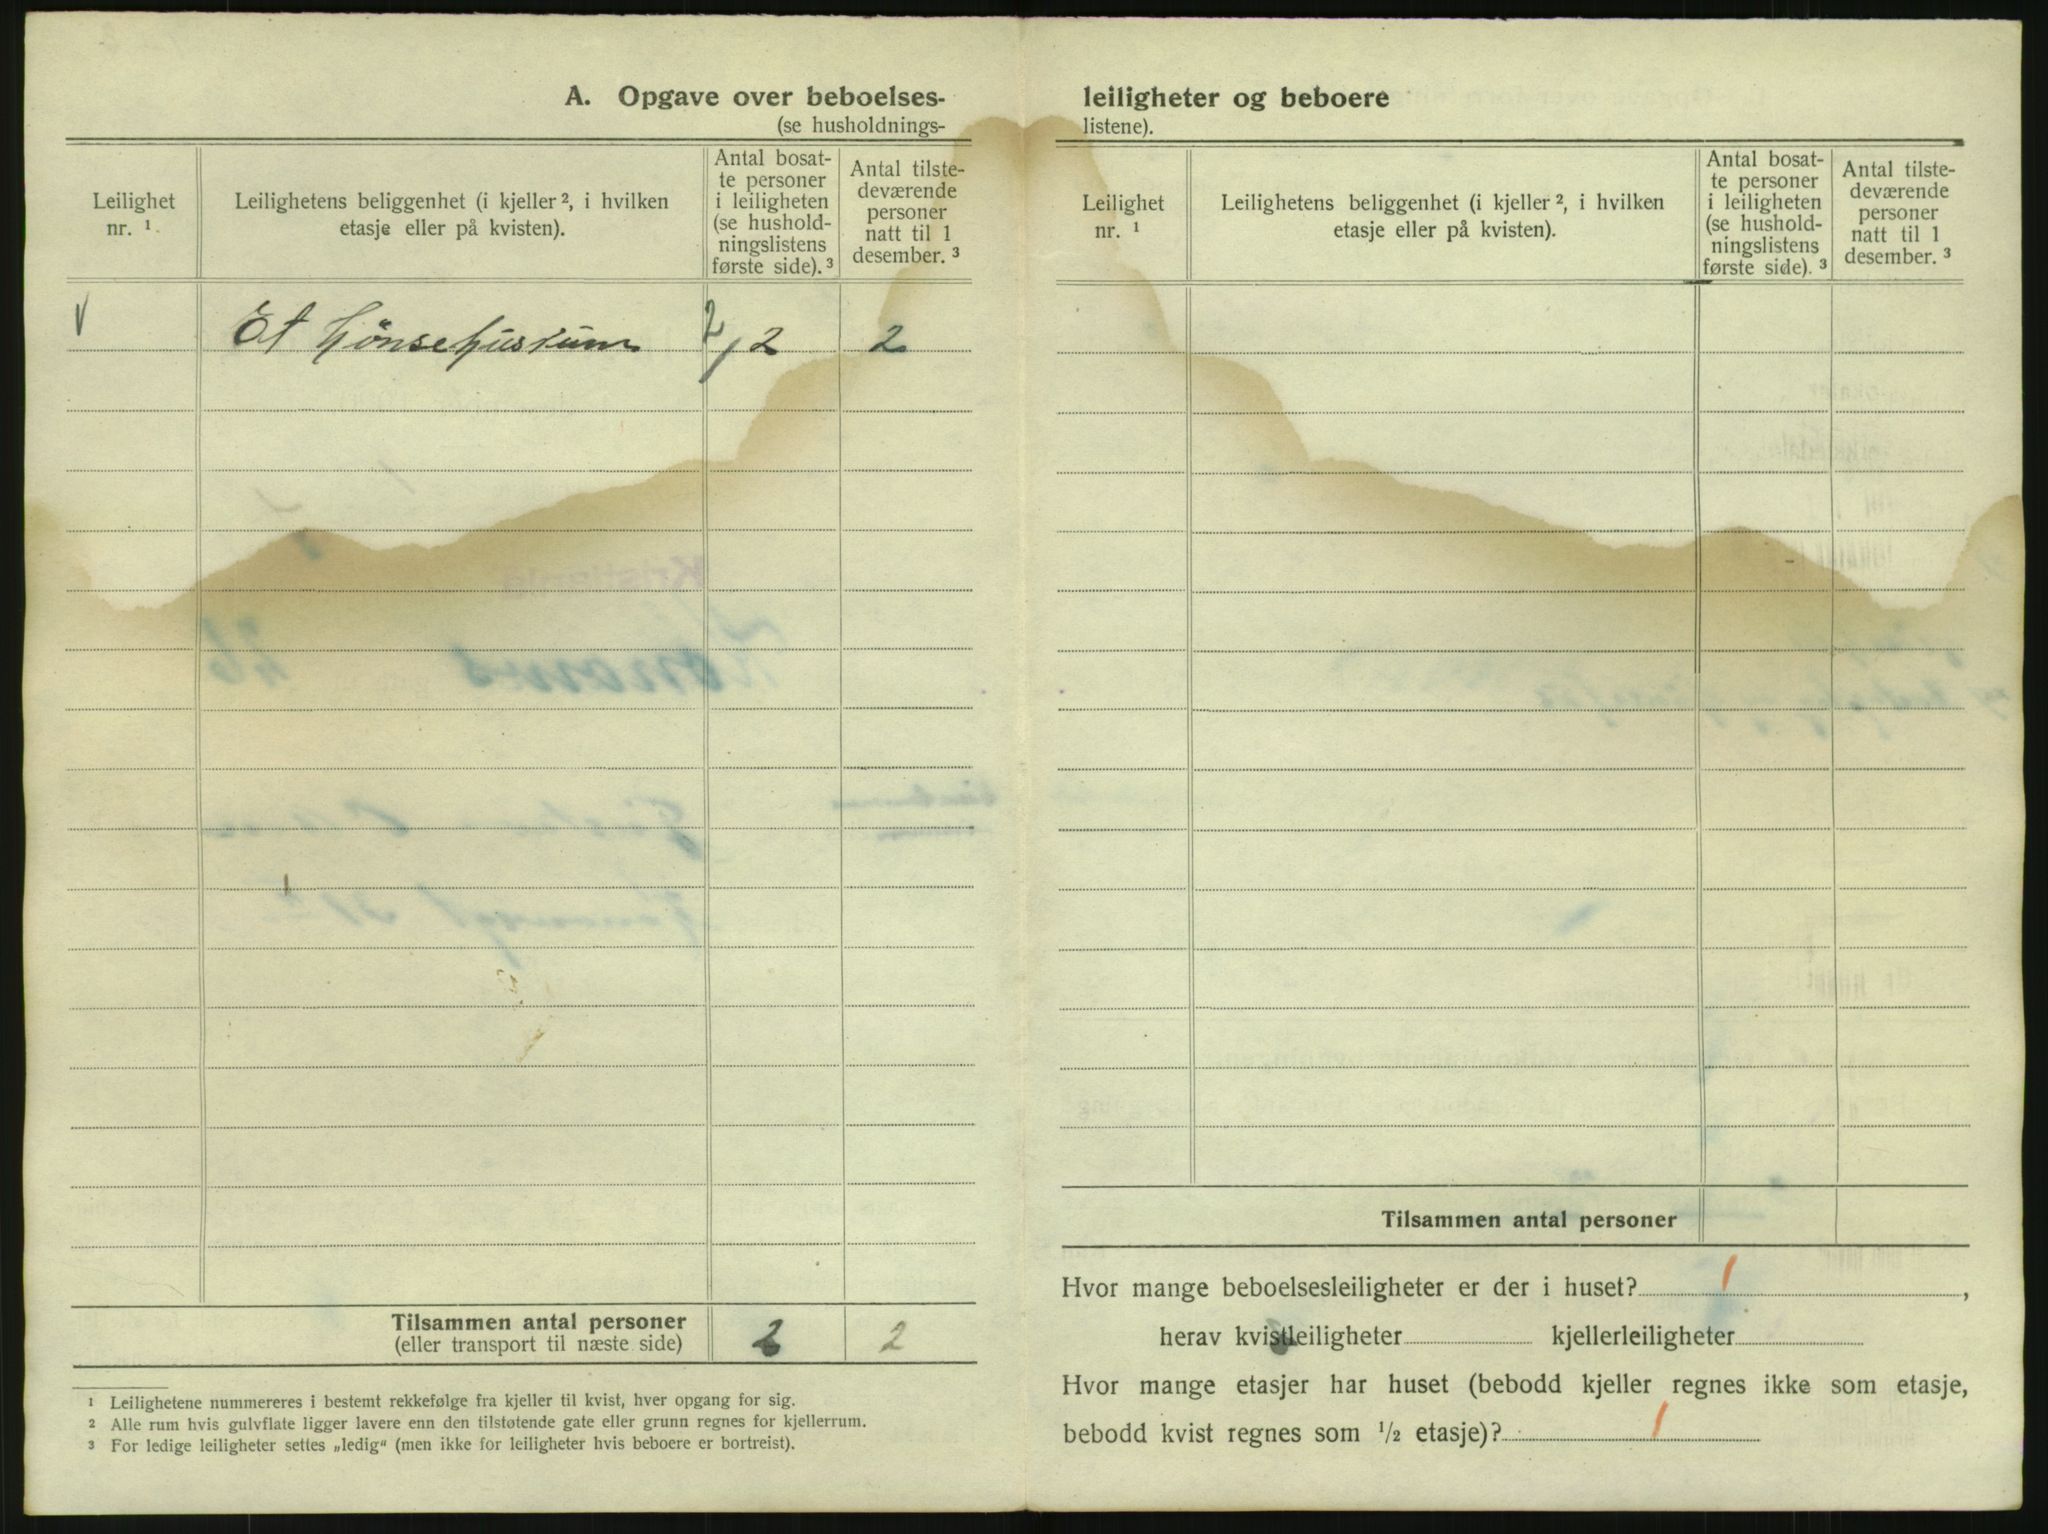 A. Opgave over beboelses-
(se husholdnings-
Leilighet
nr. ¹
Leilighetens beliggenhet (i kjeller ², i hvilken
etasje eller på kvisten).
Antal bosat-
te personer
i leiligheten
(se hushold-
ningslistens
første side). ³
Antal tilste-
deværende
personer
natt til 1
desember. ³
V Et hønsehusrum 2/2 2
Tilsammen antal personer 2 2
(eller transport til næste side)
¹ Leilighetene nummereres i bestemt rekkefølge fra kjeller til kvist, hver opgang for sig.
² Alle rum hvis gulvflate ligger lavere enn den tilstøtende gate eller grunn regnes for kjellerrum.
³ For ledige leiligheter settes „ledig“ (men ikke for leiligheter hvis beboere er bortreist).
leiligheter og beboere
listene).
Leilighet
nr. ¹
Leilighetens beliggenhet (i kjeller ², i hvilken
etasje eller på kvisten).
Antal bosat-
te personer
i leiligheten
(se hushold-
ningslistens
første side). ³
Antal tilste-
deværende
personer
natt til 1
desember. ³
Tilsammen antal personer
Hvor mange beboelsesleiligheter er der i huset? 1,
herav kvistleiligheter kjellerleiligheter
Hvor mange etasjer har huset (bebodd kjeller regnes ikke som etasje,
bebodd kvist regnes som ½ etasje)? 1